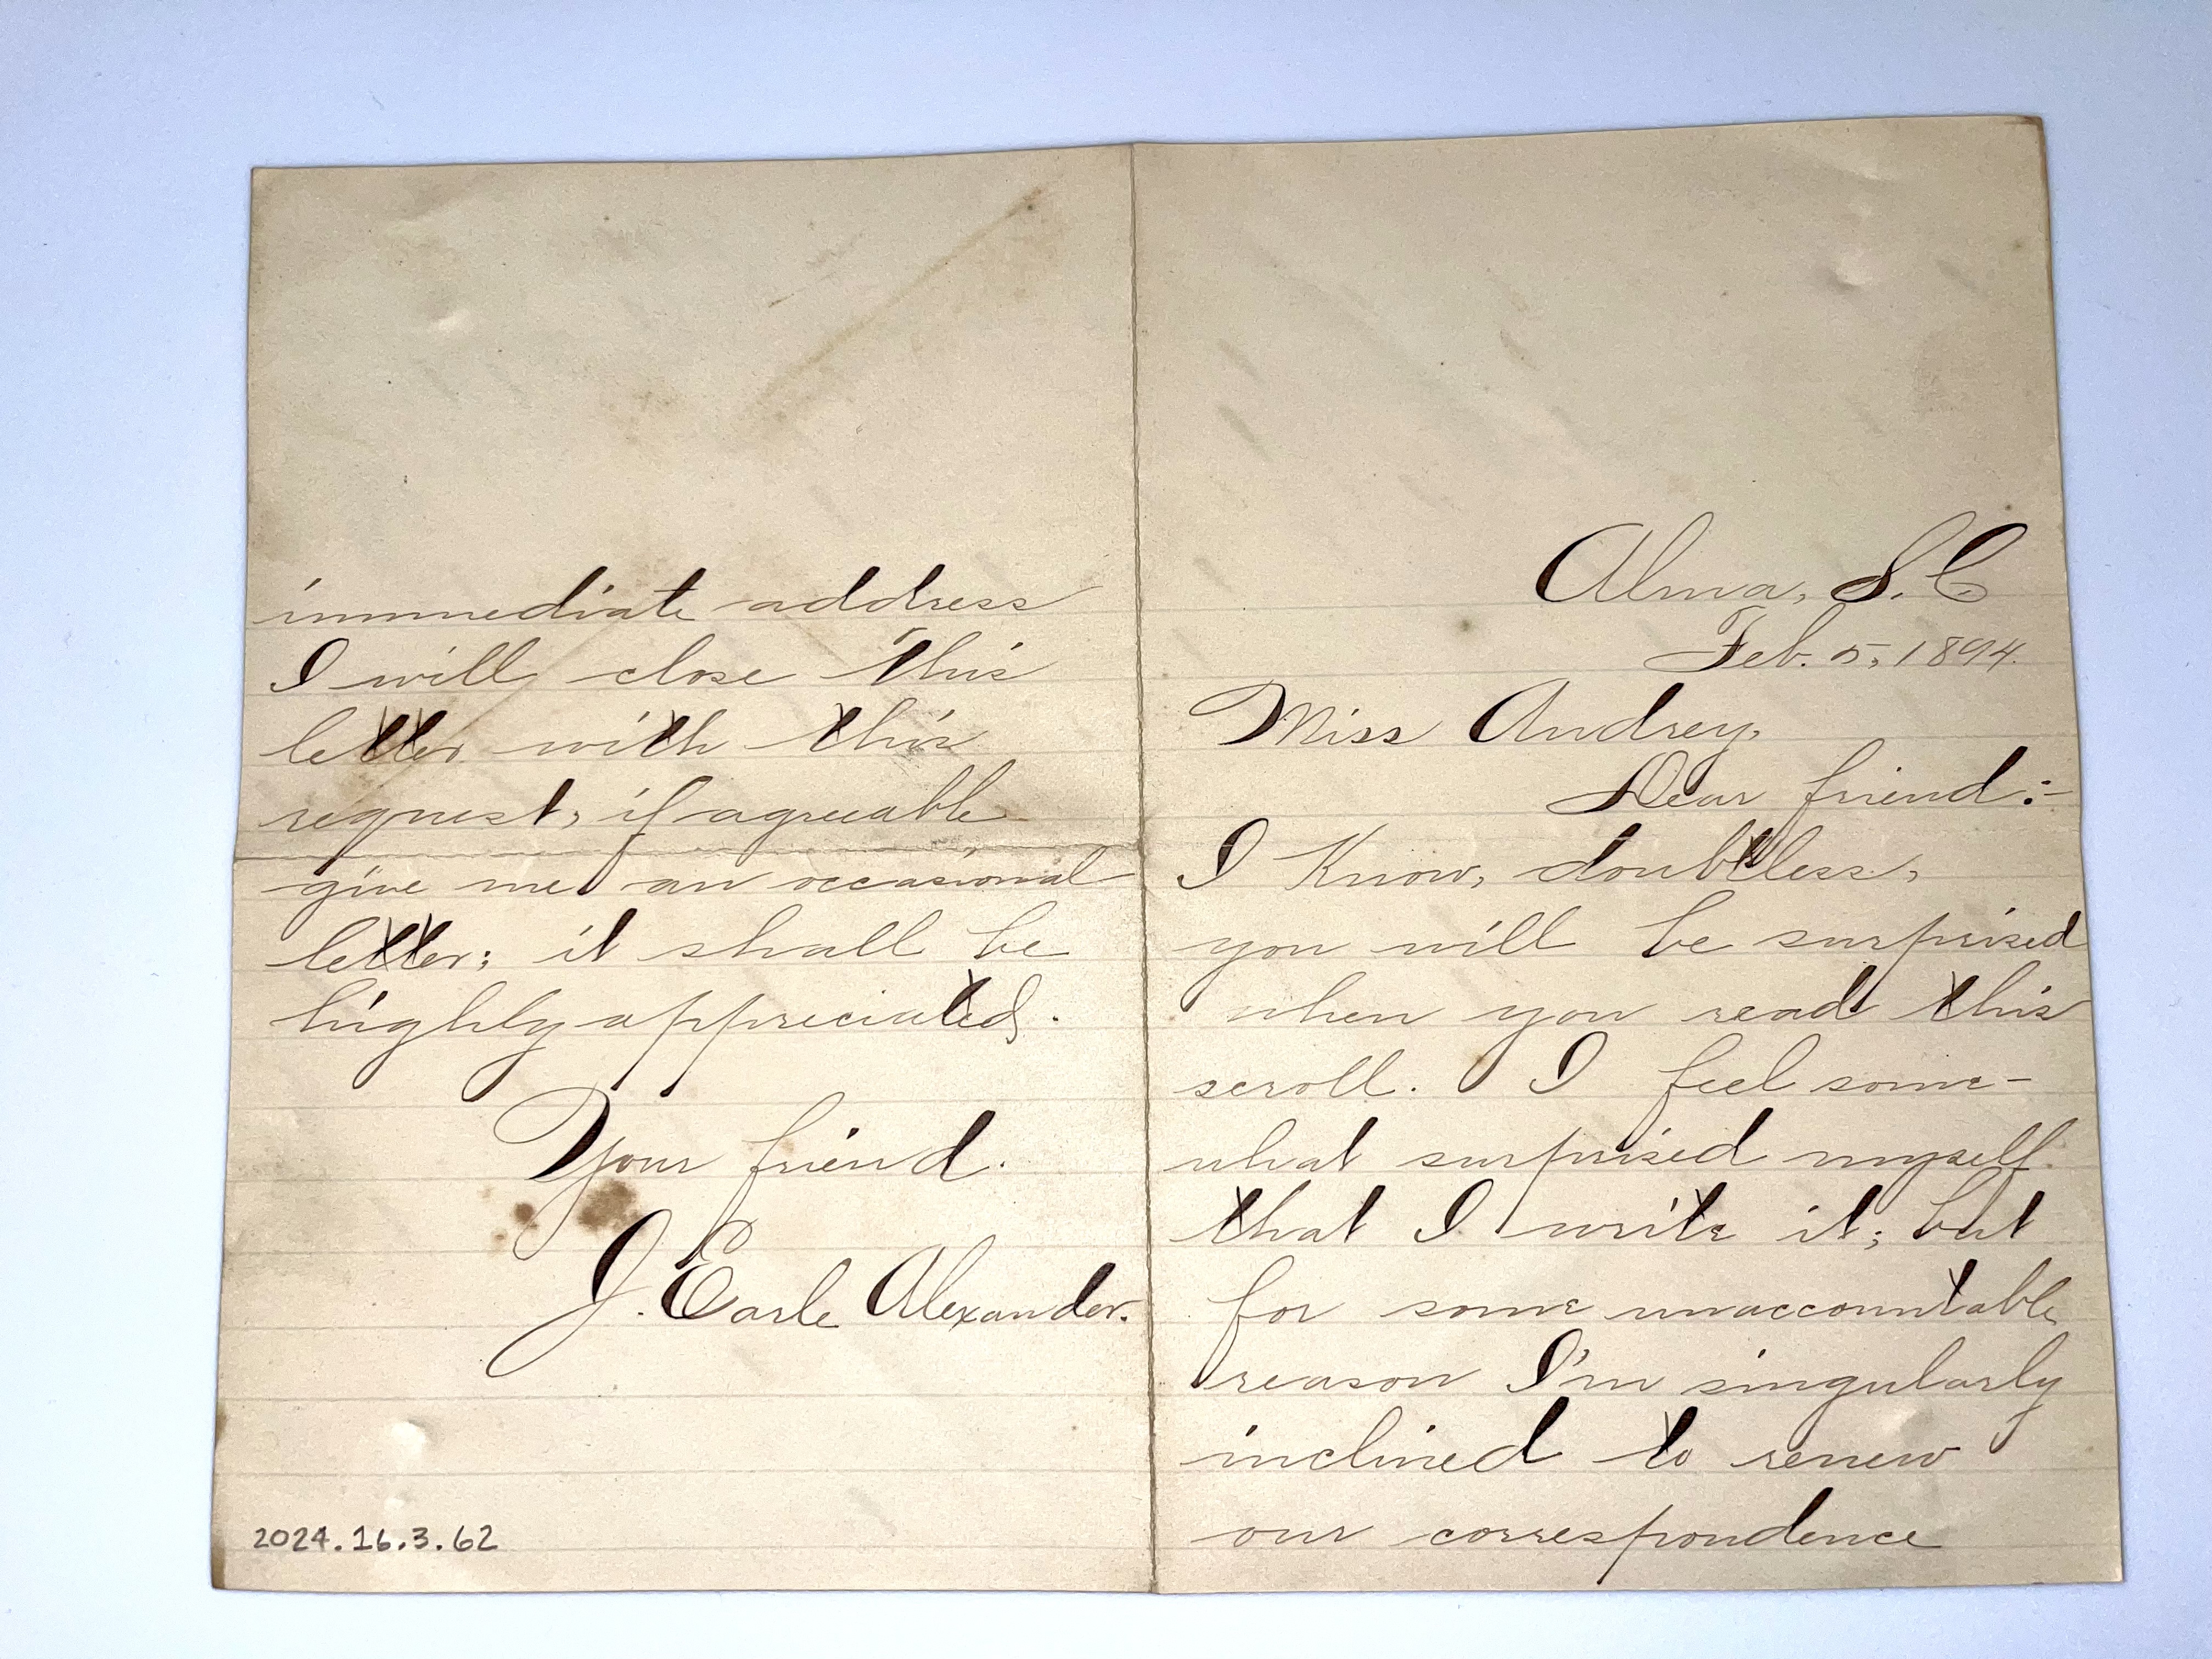 Alma, S.C
Feb. 5, 1894.
Miss Audrey,
Dear friend:-
I Know, doubtless,
you will be surprised
when you read this
scroll. I feel some-
what surprised myself
that I write it; but
for some unaccountable
reason I'm singularly
inclined to renew
our correspondence
immediate address
I will close this
letter with this
request, if agreeable
give me an occasional
letter; it shall be
highly appreciated.
Your friend.
J. Earle Alexander.
2024.16.3.62